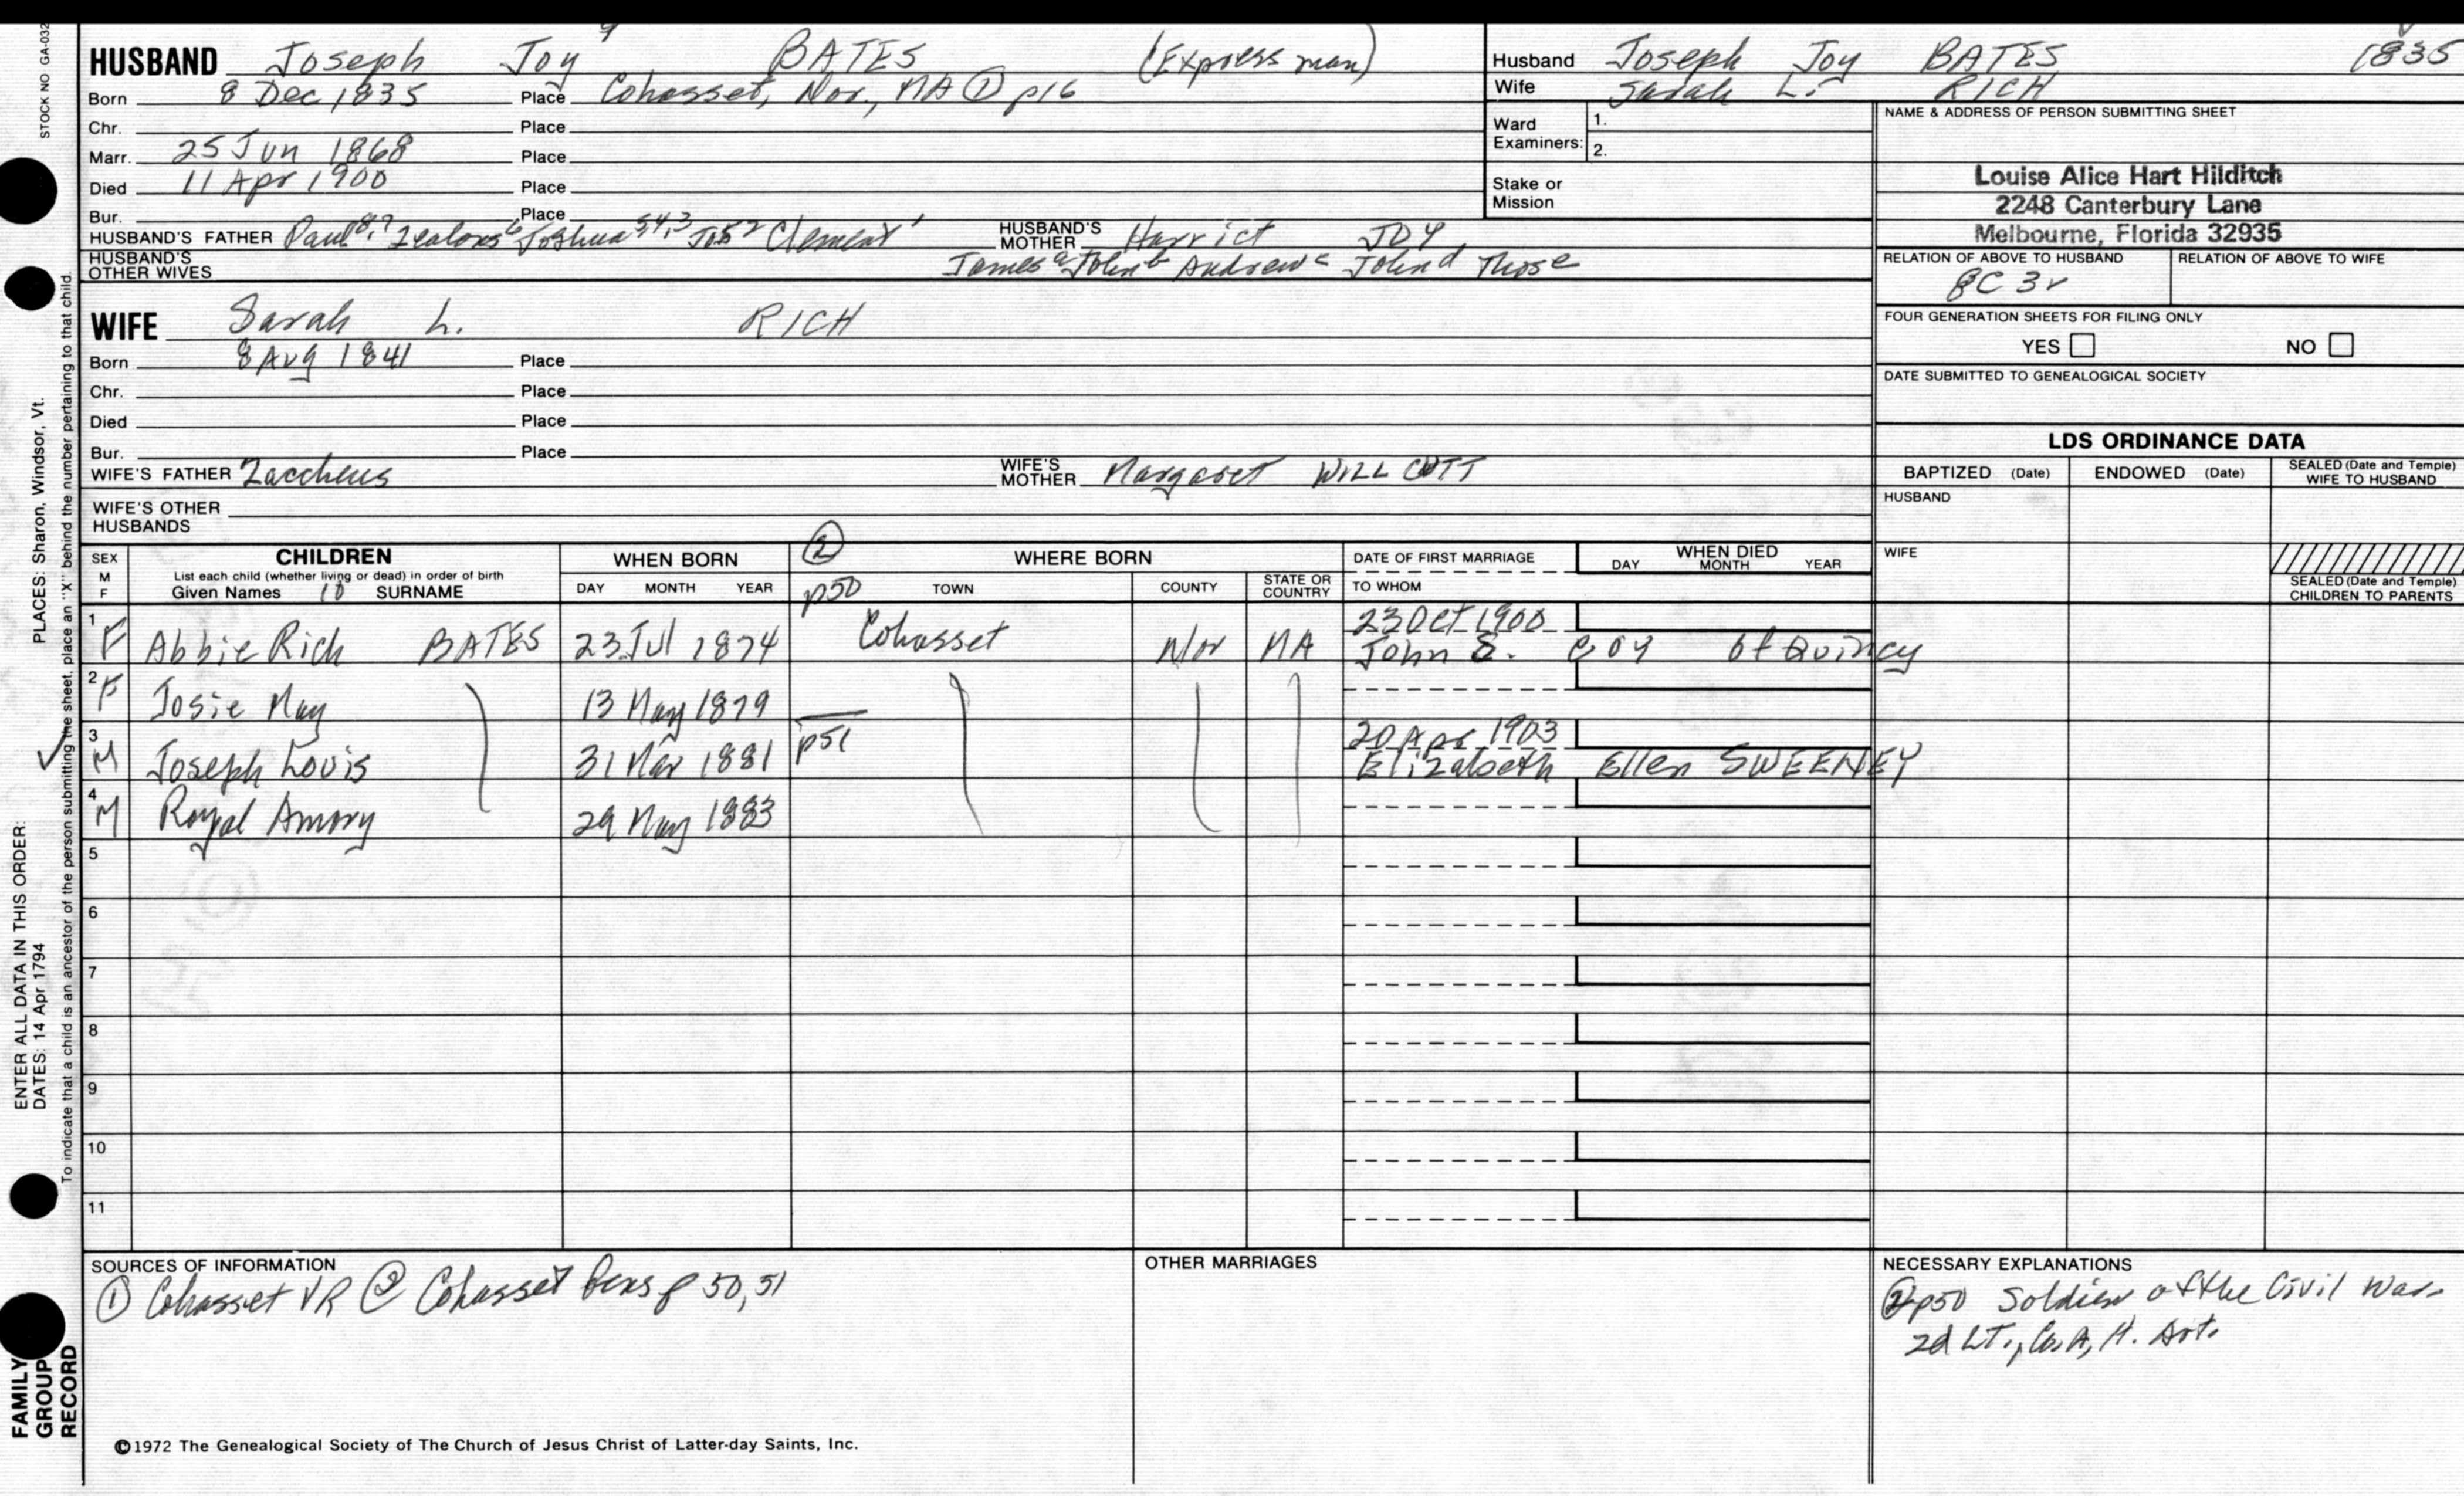 STOCK NO GA-032
HUSBAND Joseph Joy 9 BATES (Express man)
Born 8 Dec 1835 Place Cohasset, Nor., MA ① p16
Chr. Place
Marr. 25 Jun 1868 Place
Died 11 Apr 1900 Place
Bur. Place
HUSBAND'S FATHER Paul 8,7 Zealous 6 Joshua 5,4,3 Jos 2 Clement 1 HUSBAND'S MOTHER Harriet JOY
HUSBAND'S OTHER WIVES James a John b Andrew c John d Thos e
Husband Joseph Joy BATES 1835
Wife Sarah L. RICH
Ward Examiners: 1.
2.
Stake or Mission
NAME & ADDRESS OF PERSON SUBMITTING SHEET
Louise Alice Hart Hilditch
2248 Canterbury Lane
Melbourne, Florida 32935
RELATION OF ABOVE TO HUSBAND RELATION OF ABOVE TO WIFE
8C 3r
FOUR GENERATION SHEETS FOR FILING ONLY
YES NO
DATE SUBMITTED TO GENEALOGICAL SOCIETY
WIFE Sarah L. RICH
Born 8 Aug 1841 Place
Chr. Place
Died Place
Bur. Place
WIFE'S FATHER Zaccheus WIFE'S MOTHER Margaret WILLCUTT
WIFE'S OTHER HUSBANDS
LDS ORDINANCE DATA
BAPTIZED (Date) ENDOWED (Date) SEALED (Date and Temple) WIFE TO HUSBAND
HUSBAND
WIFE
SEALED (Date and Temple) CHILDREN TO PARENTS
SEX M F CHILDREN
List each child (whether living or dead) in order of birth
Given Names 10 SURNAME
WHEN BORN
DAY MONTH YEAR
② p50
WHERE BORN
TOWN COUNTY STATE OR COUNTRY
DATE OF FIRST MARRIAGE
TO WHOM
WHEN DIED
DAY MONTH YEAR
1 F Abbie Rich BATES 23 Jul 1874 Cohasset Nor MA 23 Oct 1900
John S. of Quincy
2 F Josie May 13 May 1879
3 M Joseph Louis 31 Mar 1881 p51 20 Apr 1903
Elizabeth Ellen SWEENEY
4 M Royal Amory 29 May 1883
5
6
7
8
9
10
11
SOURCES OF INFORMATION
① Cohasset VR ② Cohasset Gens p 50, 51
OTHER MARRIAGES
NECESSARY EXPLANATIONS
② p50 Soldier of the Civil War
2d Lt., Co. A, H. Art.
©1972 The Genealogical Society of The Church of Jesus Christ of Latter-day Saints, Inc.
FAMILY GROUP RECORD
ENTER ALL DATA IN THIS ORDER:
DATES: 14 Apr 1794 PLACES: Sharon, Windsor, Vt.
To indicate that a child is an ancestor of the person submitting the sheet, place an "X" behind the number pertaining to that child.